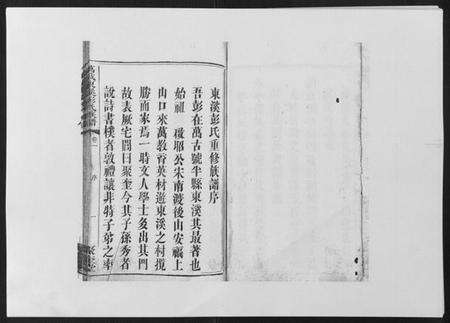 東溪彭氏重修族譜序
吾彭在萬古號半縣東溪其最著也
始祖 郢公宋南渡後由安福上
由口來萬教育英材遊東溪之村攬
勝而家焉一時文人學士多出其門
故表厥宅閭曰聚奎今其子孫秀者
說詩書樸者敦禮讓非特子弟之率